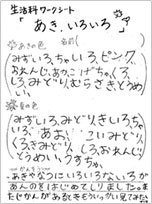 生活科ワークシート
「あき、いろいろ」
あきの色
名前（
みずいろ、ちゃいろ、ピンク、
おれんじ、あか、こげちゃ、くろ、
しろ、みどり、むらさき、とうめい、
夏の色
みずいろ、みどり、きいろ、ちゃ
いろ、あお、こいみどり、
くろ、きみどり、しろ、おれんじ、
とうめい、うすちゃ、
あきやなつにいろいろないろが
あるのをはじめてしりました。ま
たじかんがあるときもういっかい見てみたい